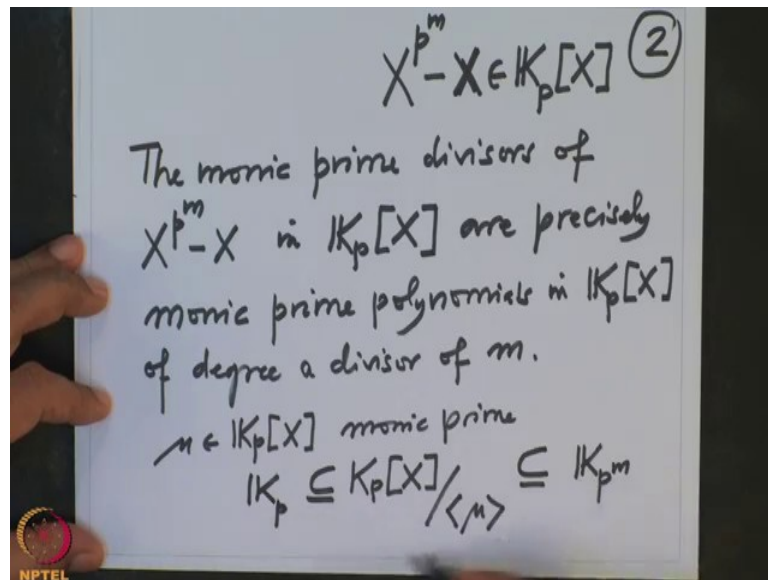 X^{p^m} - X ∈ 𝕂_p[X] ②
The monic prime divisors of
X^{p^m} - X in 𝕂_p[X] are precisely
monic prime polynomials in 𝕂_p[X]
of degree a divisor of m.
μ ∈ 𝕂_p[X] monic prime
𝕂_p ⊆ K_p[X]/<μ> ⊆ 𝕂_{p^m}
NPTEL